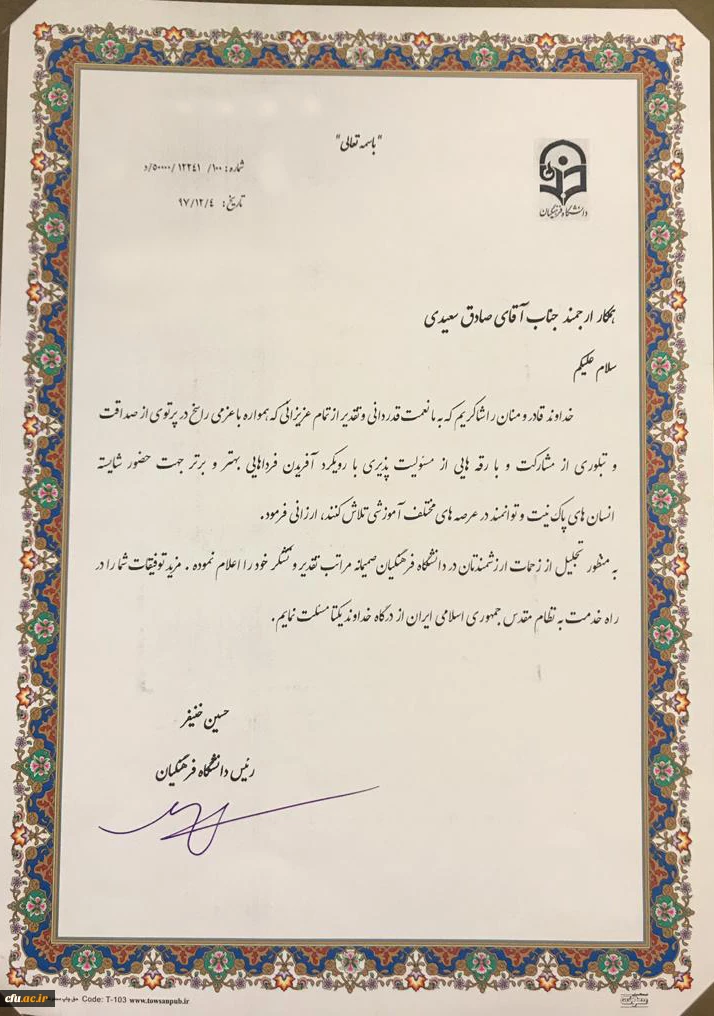 "باسمه تعالی"
شماره: ۱۰۰/ ۱۲۲۴۱ /۵۰۰۰۰/د
تاریخ: ۹۷/۱۲/۴
دانشگاه فرهنگیان
همکار ارجمند جناب آقای صادق سعیدی
سلام علیکم
خداوند قادر و منان را شاکریم که به ما نعمت قدردانی و تقدیر از تمام عزیزانی که همواره با عزمی راسخ در پرتوی از صداقت
و تبلوری از مشارکت و با رقه هایی از مسئولیت پذیری با رویکرد آفریدن فرداهایی بهتر و برتر جهت حضور شایسته
انسان های پاک نیت و توانمند در عرصه های مختلف آموزشی تلاش کنند، ارزانی فرمود.
به منظور تجلیل از زحمات ارزشمندتان در دانشگاه فرهنگیان صمیمانه مراتب تقدیر و تشکر خود را اعلام نموده . مزید توفیقات شما را در
راه خدمت به نظام مقدس جمهوری اسلامی ایران از درگاه خداوند یکتا مسئلت نمایم.
حسین خنیفر
رئیس دانشگاه فرهنگیان
cfu.ac.ir
حق چاپ Code: T-103 www.towsanpub.ir